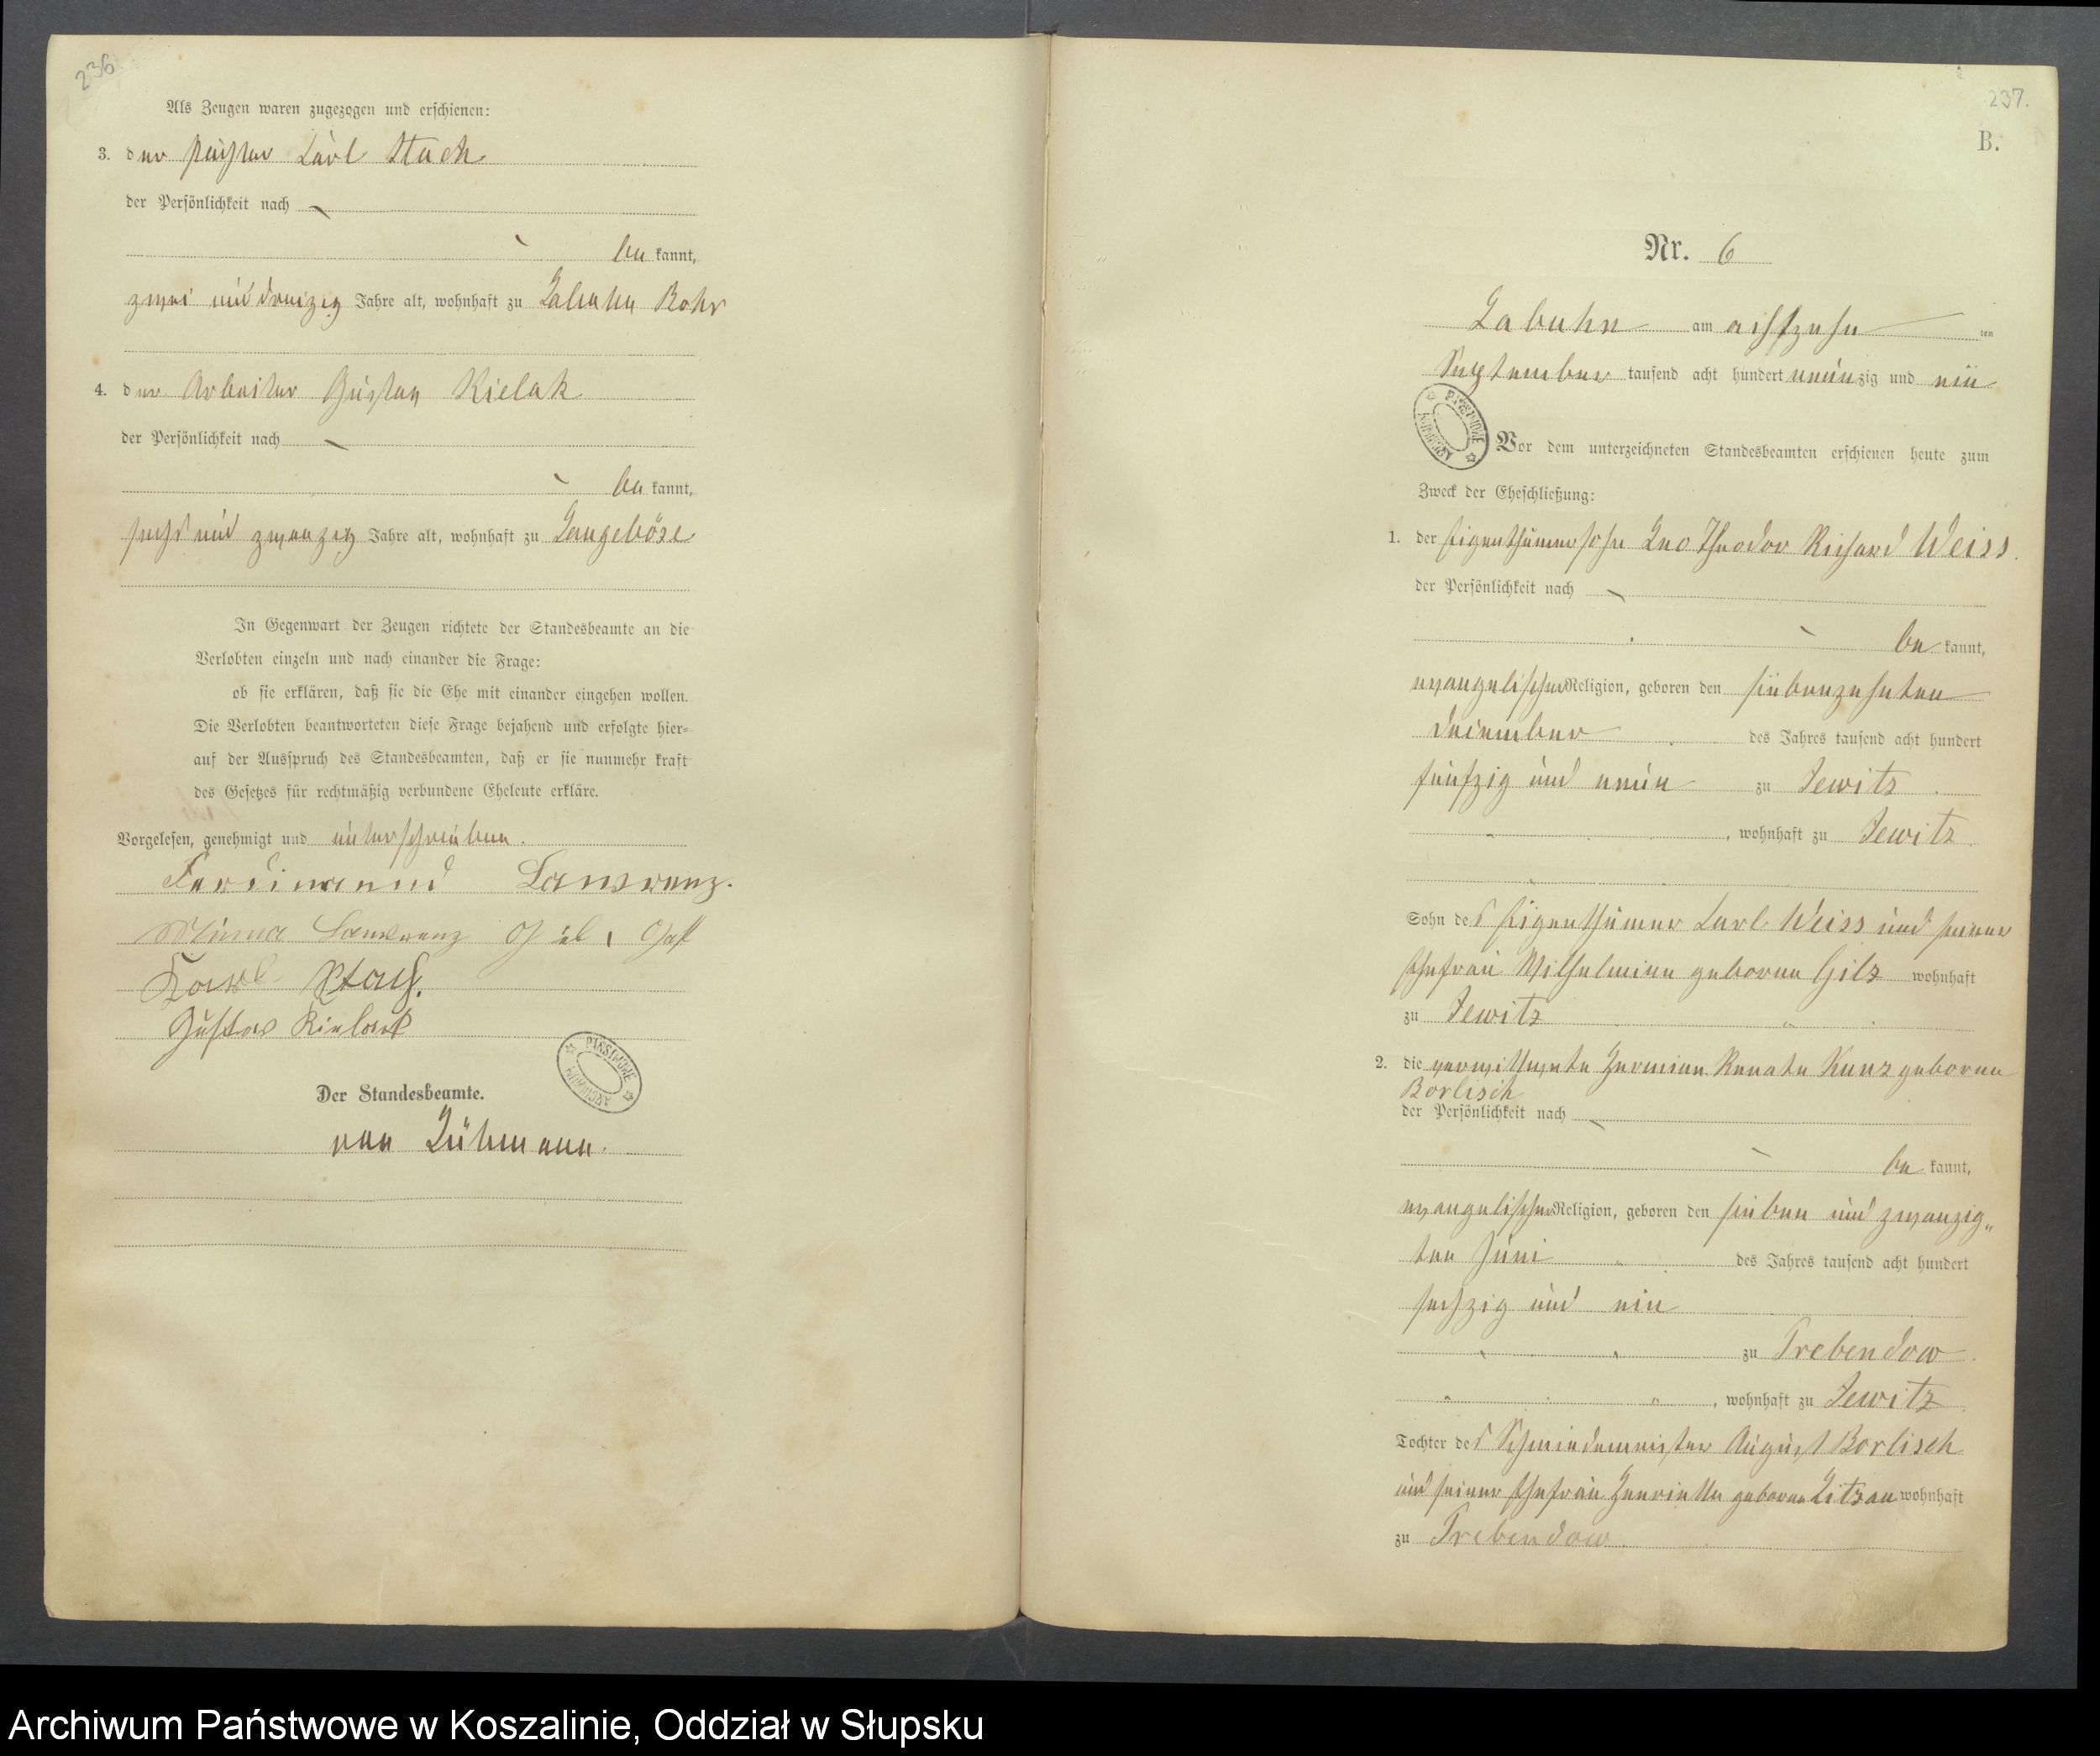 236
Als Zeugen waren zugezogen und erschienen:
3. der Pächter Carl Stach
der Persönlichkeit nach
be kannt,
zwei und dreizig Jahre alt, wohnhaft zu Labuhn Rohr
4. der Arbeiter Gustav Kielak
der Persönlichkeit nach
be kannt,
sechs und zwanzig Jahre alt, wohnhaft zu Langeböse
In Gegenwart der Zeugen richtete der Standesbeamte an die
Verlobten einzeln und nach einander die Frage:
ob sie erklären, daß sie die Ehe mit einander eingehen wollen.
Die Verlobten beantworteten diese Frage bejahend und erfolgte hier-
auf der Ausspruch des Standesbeamten, daß er sie nunmehr kraft
des Gesetzes für rechtmäßig verbundene Eheleute erkläre.
Vorgelesen, genehmigt und unterschrieben.
Ferdinannd Lawrenz.
Minna Lawrenz
Karl Stach.
Gustav Kielack
PAŃSTWOWE ARCHIWUM
Der Standesbeamte.
von Lübmann.
237.
B.
Nr. 6
Labuhn am achtzehn ten
September tausend acht hundert neunzig und ein
PAŃSTWOWE ARCHIWUM
Vor dem unterzeichneten Standesbeamten erschienen heute zum
Zweck der Eheschließung:
1. der Eigenthümersohn Leo Theodor Richard Weiss
der Persönlichkeit nach
be kannt,
evangelischer Religion, geboren den siebenzehnten
December des Jahres tausend acht hundert
fünfzig und neun zu Jewitz
, wohnhaft zu Jewitz
Sohn des Eigenthümer Carl Weiss und seiner
Ehefrau Wilhelmine geborne Gilz wohnhaft
zu Jewitz
2. die verwittwete Hermine Renate Kunz geborene
Borlisch
der Persönlichkeit nach
be kannt,
evangelischer Religion, geboren den sieben und zwanzig„
ten Juni des Jahres tausend acht hundert
sechzig und ein
zu Trebendow
, wohnhaft zu Jewitz
Tochter des Schmiedemeister August Borlisch
und seiner Ehefrau Henriette geborne Litzau wohnhaft
zu Trebendow
Archiwum Państwowe w Koszalinie, Oddział w Słupsku